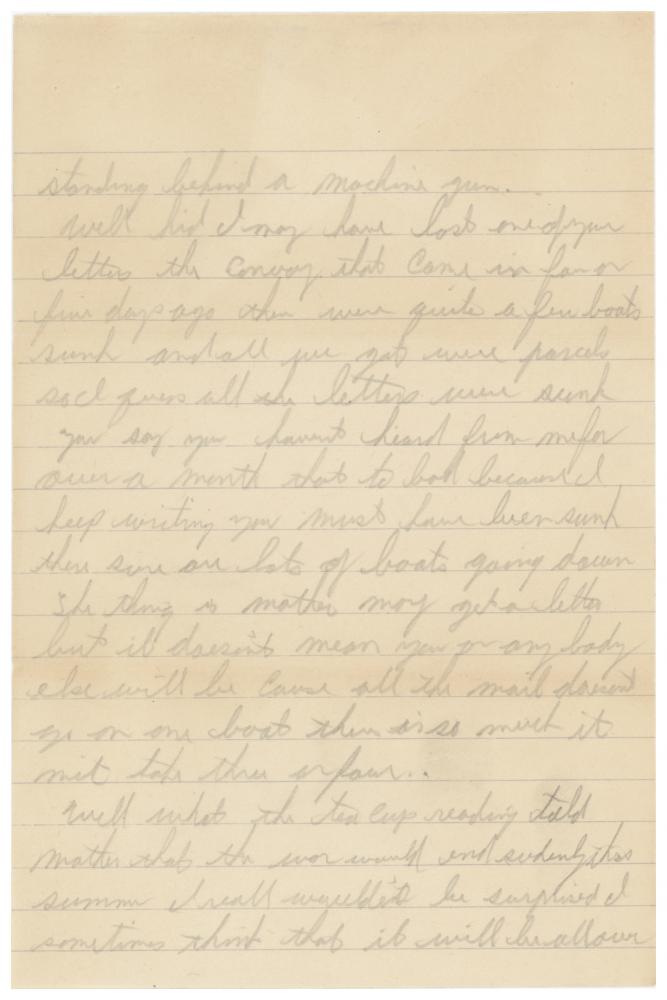 standing behind a machine gun..
Well kid I may have lost one of your
letters the convoy that came in four or
five days ago there were quite a few boats
sunk and all we got were parcels
so I guess all the letters were sunk
you say you havent heard from me for
over a month that to bad because I
keep writing you must have been sunk
there sure are lots of boats going down
The thing is mother may get a letter
but it doesn't mean you or any body
else will be cause all the mail doesnt
go on one boat there is so much it
mit take three or four..
Well what the tea cup reading told
mother that the war would end sudenly this
summer I reall wouldn't be surprised I
sometimes think that it will be all over